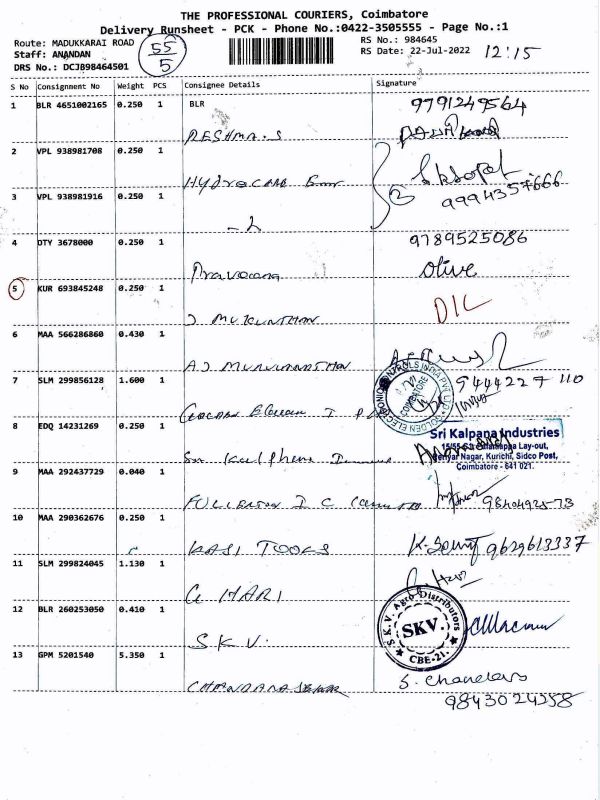 THE PROFESSIONAL COURIERS, Coimbatore
Delivery Runsheet - PCK - Phone No.:0422-3505555 - Page No.:1
Route: MADUKKARAI ROAD 55 RS No.: 984645
Staff: ANANDAN 5 RS Date: 22-Jul-2022 12:15
DRS No.: DCJB98464501
S No Consignment No Weight PCS Consignee Details Signature
1 BLR 4651002165 0.250 1 BLR 9791249564
RESHMA.S
2 VPL 938981708 0.250 1
Hydrocare
3 VPL 938981916 0.250 1 2 9994357666
-2
4 OTY 3678000 0.250 1 9789525086
Praveena Olive
5 KUR 693845248 0.250 1 D/L
J MUKUNTHAN
6 MAA 566286860 0.430 1
A.J
7 SLM 299856128 1.600 1 GOLDEN ELECTRONIC CONTROLS INDIA PVT LTD COIMBATORE 9444227 110
8 EDQ 14231269 0.250 1 Sri Kalpana Industries
Lay-out,
Nagar, Kurichi, Sidco Post,
Coimbatore - 641 021.
Sri
9 MAA 292437729 0.040 1
FULLERTON I C 9840492573
10 MAA 290362676 0.250 1
KASI TOOLS 9629613337
11 SLM 299824045 1.130 1
G. HARI
12 BLR 260253050 0.410 1 S.K.V. Agro Distributors SKV. CBE-21.
S.K.V.
13 GPM 5201540 5.350 1
CHANDRASEKAR S. Chandra
9843024358